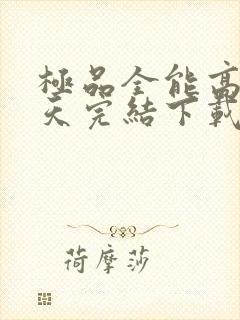 極品全能高
天完結下載
荷摩莎